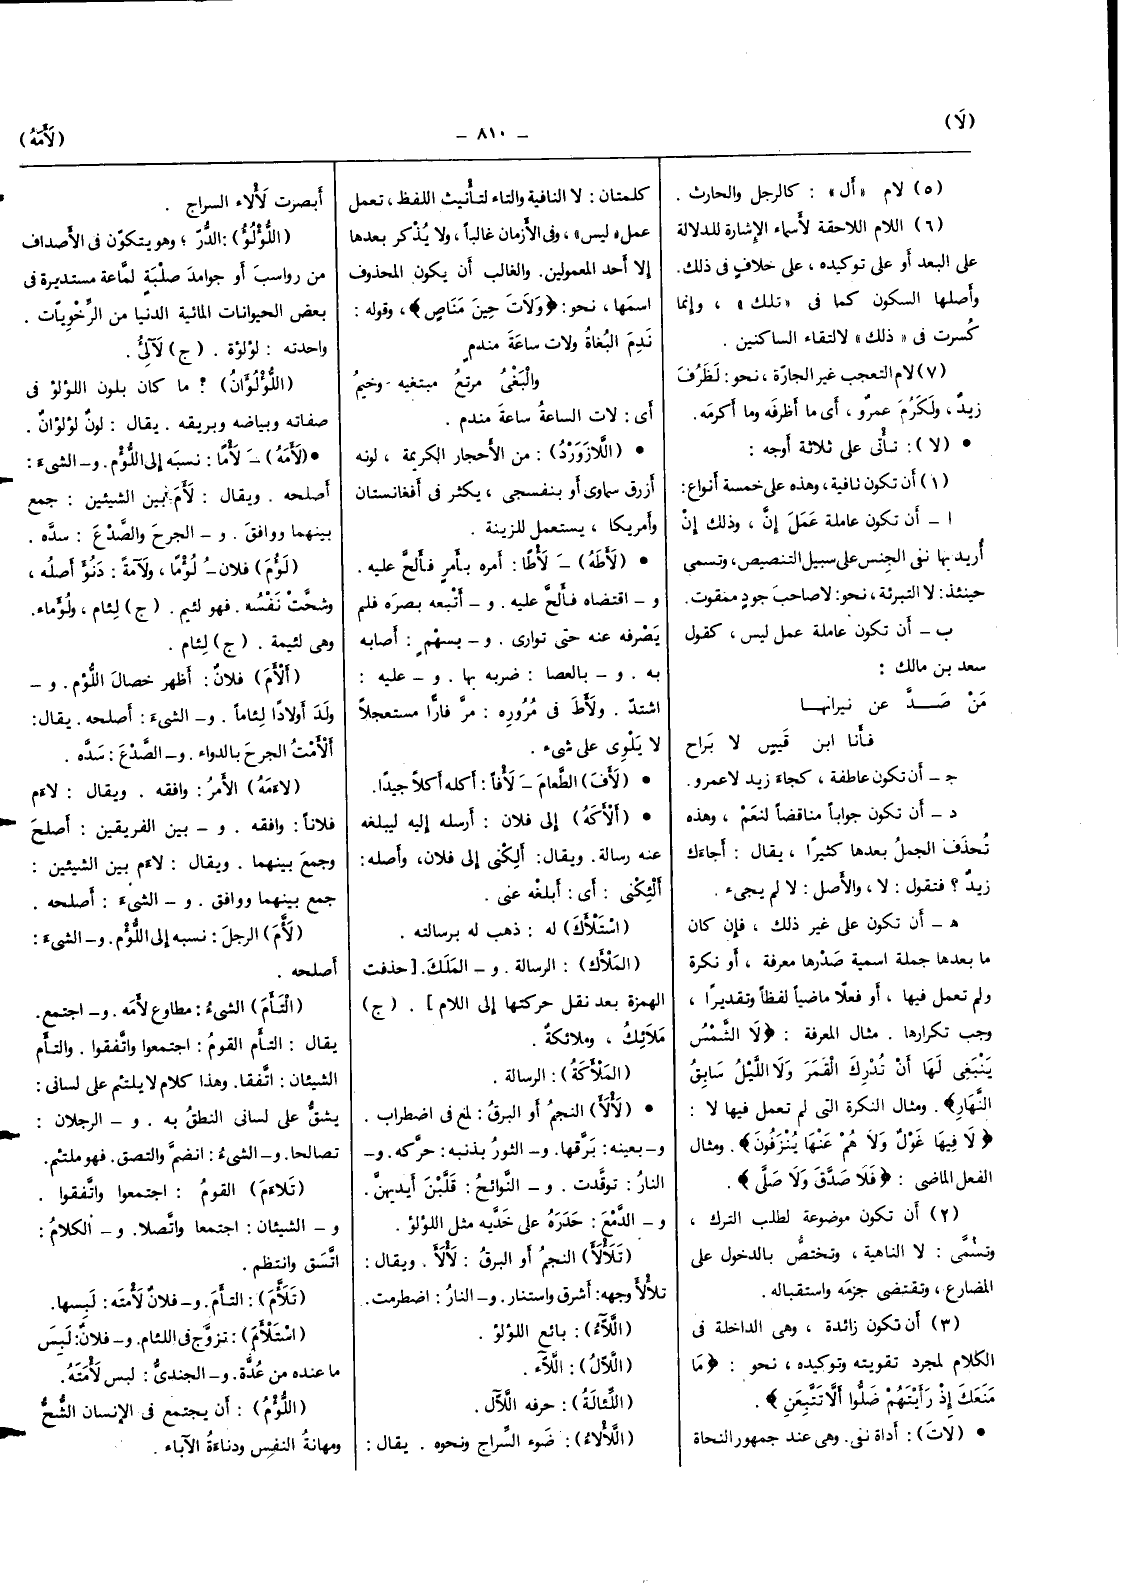 (لَا)
— ٨١٠ —
(لَأَمَهُ)
(٥) لام «أل» : كالرجل والحارث .
(٦) اللام اللاحقة لأسماء الإشارة للدلالة
على البعد أو على توكيده ، على خلافٍ فى ذلك.
وأصلها السكون كما فى «تلك» ، وإنما
كُسرت فى «ذلك» لالتقاء الساكنين .
(٧) لام التعجب غير الجارّة ، نحو : لَظَرُفَ
زيدٌ ، ولَكَرُمَ عمرٌو ، أى ما أظرفَه وما أكرمَه.
• (لا) : تأتى على ثلاثة أوجه :
(١) أن تكون نافية ، وهذه على خمسة أنواع :
ا – أن تكون عاملة عَمَلَ إنَّ ، وذلك إنْ
أُريد بها نفى الجنس على سبيل التنصيص، وتسمى
حينئذ : لا التبرئة ، نحو : لا صاحبَ جودٍ ممقوت.
ب – أن تكون عاملة عمل ليس ، كقول
سعد بن مالك :
مَنْ صَـــدَّ عن نيرانها
فأنا ابن قَيسٍ لا بَراح
ج – أن تكون عاطفة ، كجاءَ زيد لا عمرو.
د – أن تكون جواباً مناقضاً لنعَمْ ، وهذه
تُحذَف الجملُ بعدها كثيرًا ، يقال : أجاءَك
زيدٌ ؟ فتقول : لا ، والأصل : لا لم يجىء .
ه – أن تكون على غير ذلك ، فإن كان
ما بعدها جملة اسمية صَدْرها معرفة ، أو نكرة
ولم تعمل فيها ، أو فعلًا ماضياً لفظاً وتقديرًا ،
وجب تكرارها . مثال المعرفة : ﴿لَا الشَّمْسُ
يَنْبَغِى لَهَا أَنْ تُدْرِكَ الْقَمَرَ وَلَا اللَّيْلُ سَابِقُ
النَّهَارِ﴾ . ومثال النكرة التى لم تعمل فيها لا :
﴿لَا فِيهَا غَوْلٌ وَلَا هُمْ عَنْهَا يُنْزَفُونَ﴾ . ومثال
الفعل الماضى : ﴿فَلَا صَدَّقَ وَلَا صَلَّى﴾ .
(٢) أن تكون موضوعة لطلب الترك ،
وتسْمَّى : لا الناهية ، وتختصُّ بالدخول على
المضارع ، وتقتضى جزمَه واستقباله .
(٣) أن تكون زائدة ، وهى الداخلة فى
الكلام لمجرد تقويته وتوكيده ، نحو : ﴿مَا
مَنَعَكَ إِذْ رَأَيْتَهُمْ ضَلُّوا أَلَّا تَتَّبِعَنِ﴾ .
• (لاتَ) : أداة نفى. وهى عند جمهور النحاة
كلمتان : لا النافية والتاء لتأنيث اللفظ ، تعمل
عمل «ليس» ، وفى الأزمان غالباً ، ولا يُذْكر بعدها
إلا أحد المعمولين. والغالب أن يكون المحذوف
اسمَها ، نحو : ﴿وَلَاتَ حِينَ مَنَاصٍ﴾ ، وقوله :
نَدِمَ البُغاةُ ولات ساعَةَ مندمٍ
والبَغْىُ مرتعُ مبتغيه وخيمُ
أى : لات الساعةُ ساعةَ مندم .
• (اللَّازَوَرْدُ) : من الأحجار الكريمة ، لونه
أزرق سماوى أو بنفسجى ، يكثر فى أفغانستان
وأمريكا ، يستعمل للزينة .
• (لَأَطَهُ) – لَأْطًا : أمره بأمرٍ فألحَّ عليه .
و – اقتضاه فألحَّ عليه . و – أتْبعه بصرَه فلم
يَصْرفه عنه حتى توارى . و – بسهْمٍ : أصابه
به . و – بالعصا : ضربه بها . و – عليه :
اشتدّ . ولَأَطَ فى مُرُورِه : مرَّ فارًّا مستعجلاً
لا يَلْوِى على شىء .
• (لَأَفَ) الطَّعامَ – لَأْفاً : أكله أكلاً جيدًا.
• (أَلْأَكَهُ) إلى فلان : أرسله إليه ليبلغه
عنه رسالة. ويقال: أَلِكْنى إلى فلان، وأصله:
أَلْئِكْنى : أى : أبلغْه عنى .
(اسْتَلْأَكَ) له : ذهب له برسالته .
(المَلْأَكُ) : الرسالة . و – المَلَكَ. [حذفت
الهمزة بعد نقل حركتها إلى اللام] . (ج)
مَلَائِكُ ، وملائكةٌ .
(المَلْأَكَةُ) : الرسالة .
• (لَأْلَأَ) النجمُ أو البرقُ : لمع فى اضطراب .
و – بعينه : بَرَّقها. و – الثورُ بذنبه : حرَّكه. و –
النارُ : توقَّدت . و – النَّوائحُ : قَلَّبْنَ أيديهنَّ .
و – الدَّمْعَ : حَدَرَهُ على خَدَّيه مثل اللؤلؤ .
(تَلَأْلَأَ) النجمُ أو البرقُ : لَأْلَأَ . ويقال :
تلألأ وجهه: أشرق واستنار. و – النارُ : اضطرمت.
(اللَّآَّءُ) : بائع اللؤلؤ .
(اللَّآَّلُ) : اللَّآَّء .
(اللِّئَالَةُ) : حرفه اللَّآل .
(اللَّأْلَاءُ) : ضَوء السِّراج ونحوه . يقال :
أبصرت لَأْلاء السراج .
(اللُّؤْلُؤُ) : الدُّرّ ؛ وهو يتكوّن فى الأصداف
من رواسبَ أو جوامدَ صلْبَةٍ لمَّاعة مستديرة فى
بعض الحيوانات المائية الدنيا من الرِّخْويّات .
واحدته : لؤلؤة . (ج) لَآلِئُ .
(اللُّؤْلُؤَانُ) : ما كان بلون اللؤلؤ فى
صفائه وبياضه وبريقه . يقال : لونٌ لؤلؤانٌ .
• (لَأَمَهُ) – لَأْمًا : نسبَه إلى اللُّؤم. و – الشىءَ :
أصلحه . ويقال : لَأَمَ بين الشيئين : جمع
بينهما ووافقَ . و – الجرحَ والصَّدْعَ : سدّه .
(لَؤُمَ) فلان – لُؤْمًا ، ولَآمةً : دَنُؤَ أصلُه ،
وشحَّتْ نَفْسُه . فهو لئيم . (ج) لِئام ، ولُؤَماء.
وهى لئيمة . (ج) لِئام .
(أَلْأَمَ) فلانٌ : أظهر خصالَ اللُّؤْم . و –
ولَدَ أولادًا لِئاماً . و – الشىءَ : أصلحه . يقال:
أَلْأَمْتُ الجرحَ بالدواء . و – الصَّدْعَ : سَدَّه .
(لاءَمَهُ) الأمرُ : وافقه . ويقال : لاءم
فلاناً : وافقه . و – بين الفريقين : أصلحَ
وجمعَ بينهما . ويقال : لاءم بين الشيئين :
جمع بينهما ووافق . و – الشىءَ : أصلحه .
(لَأَّمَ) الرجلَ : نسبه إلى اللُّؤم. و – الشىءَ :
أصلحه .
(الْتَأَمَ) الشىءُ : مطاوع لأَمَه . و – اجتمع.
يقال : التأم القومُ : اجتمعوا واتَّفقوا . والتأَم
الشيئان : اتَّفقا. وهذا كلام لا يلتئم على لسانى :
يشقُّ على لسانى النطقُ به . و – الرجلان :
تصالحا. و – الشىءُ : انضمَّ والتصق . فهو ملتئم.
(تَلَاءَمَ) القومُ : اجتمعوا واتَّفقوا .
و – الشيئان : اجتمعا واتَّصلا. و – الكلامُ :
اتَّسَق وانتظم .
(تَلَأَّمَ) : التأمَ. و – فلانٌ لَأْمتَه : لَبِسها.
(اسْتَلْأَمَ) : تزوَّج فى اللئام. و – فلانٌ: لَبِسَ
ما عنده من عُدَّة. و – الجندىُّ : لبس لَأْمَتَهُ.
(اللُّؤْمُ) : أن يجتمع فى الإنسان الشُّحُّ
ومهانةُ النفس ودناءةُ الآباء .